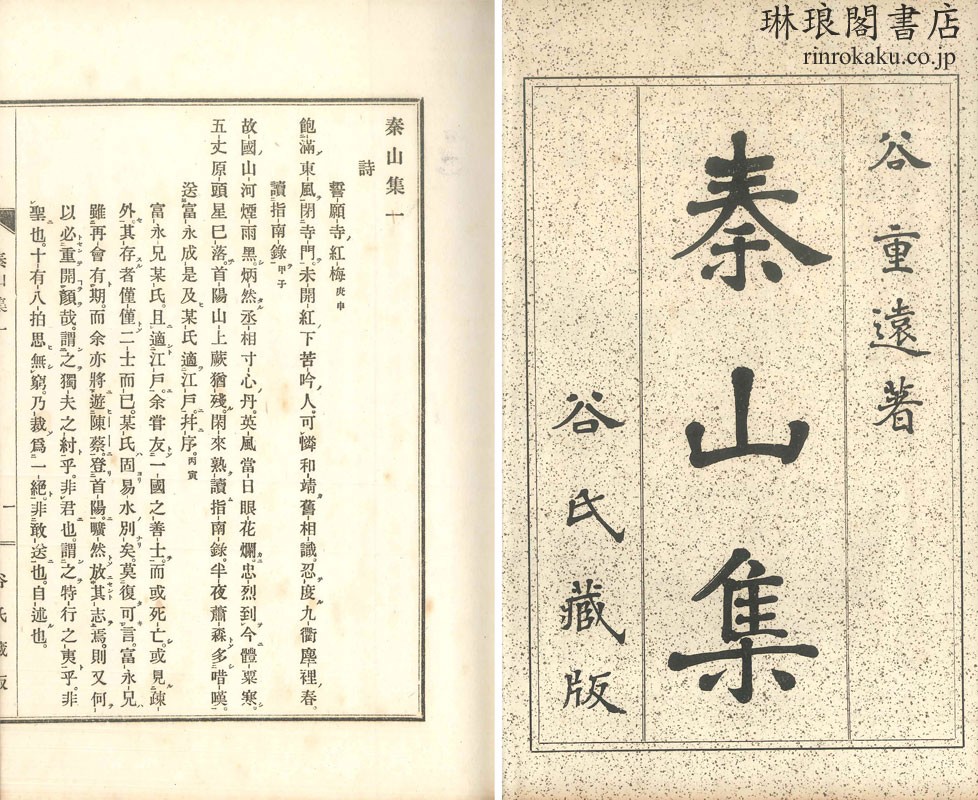 琳琅閣書店
rinrokaku.co.jp
谷重遠著
秦山集
谷氏藏版
秦山集一
詩
誓願寺紅梅 庚申
飽滿東風閉寺門。未開紅下苦吟人。可憐和靖舊相識。忍度九衢塵裡春。
讀指南錄 甲子
故國山河煙雨黑。炳然丞相寸心丹。英風當日眼花爛。忠烈到今體粟寒。
五丈原頭星已落。首陽山上蕨猶殘。閑來熟讀指南錄。半夜蕭森多唶嘆。
送富永成是及某氏適江戶。幷序。 丙寅
富永兄某氏。且適江戶。余嘗友一國之善士。而或死亡。或見疎
外。其存者僅僅二士而已。某氏固易水別矣。莫復可言。富永兄
雖再會有期。而余亦將遊陳蔡。登首陽。曠然放其志焉。則又何
以必重開顏哉。謂之獨夫之紂乎。非君也。謂之特行之夷乎。非
聖也。十有八拍思無窮。乃裁爲一絕。非敢送也。自述也。